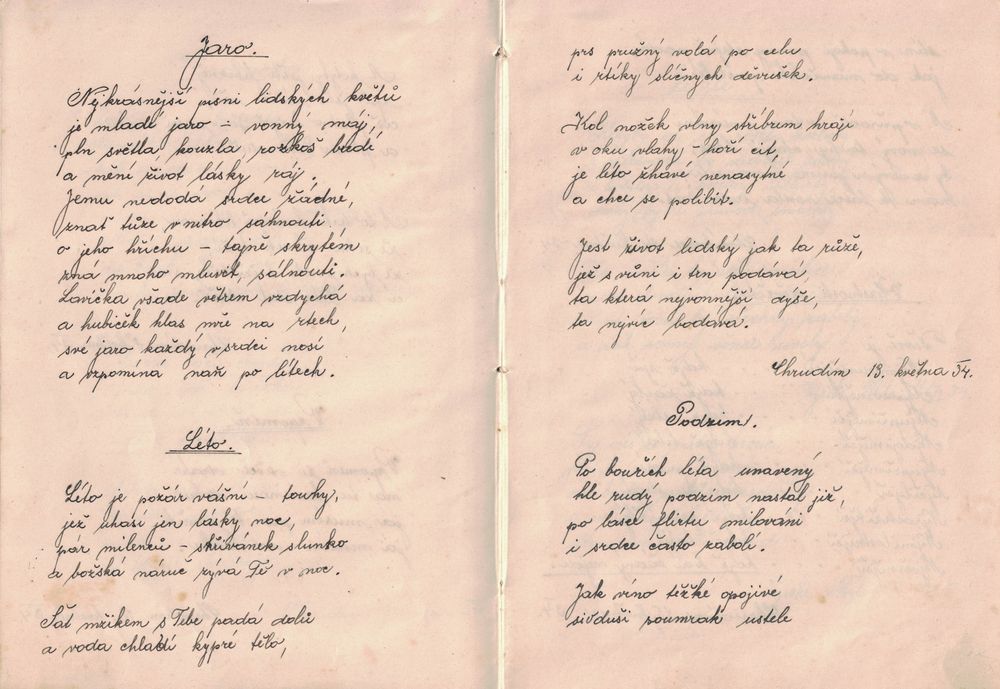 Jaro.
Nejkrásnější písni lidských květů
je mladé jaro – vonný máj,
pln světla, kouzla, rozkoš budí
a mění život lásky ráj.
Jemu nedodá srdce žádné,
znať tůze v nitro sáhnouti
o jeho hříchu – tajně skrytém
zná mnoho mluvit, sálnouti.
Lavička všade větrem vzdychá
a hubiček hlas mře na rtech,
své jaro každý v srdci nosí
a vzpomíná naň po létech.
Léto.
Léto je požár vášní – touhy,
jež uhasí jen lásky noc,
pár milenců – skřivánek slunko
a božská náruč zývá Tě v noc.
Šat mžikem s Tebe padá dolů
a voda chladí kypré tělo,
prs pružný volá po celu
i rtíky sličných děvušek.
Kol nožek vlny stříbrem hrají
v oku vlahy – hoří cit,
je léto žhavé nenasytné
a chce se políbit.
Jest život lidský jak ta růže,
jež s vůní i trn podává,
ta která nejvonnější dýše,
ta nejvíc bodává.
Chrudím 13. května 54.
Podzim.
Po bouřích léta unavený
hle rudý podzim nastal již,
po lásce flirtu milování
i srdce často zabolí.
Jak víno těžké opojivé
si v duši soumrak ustele